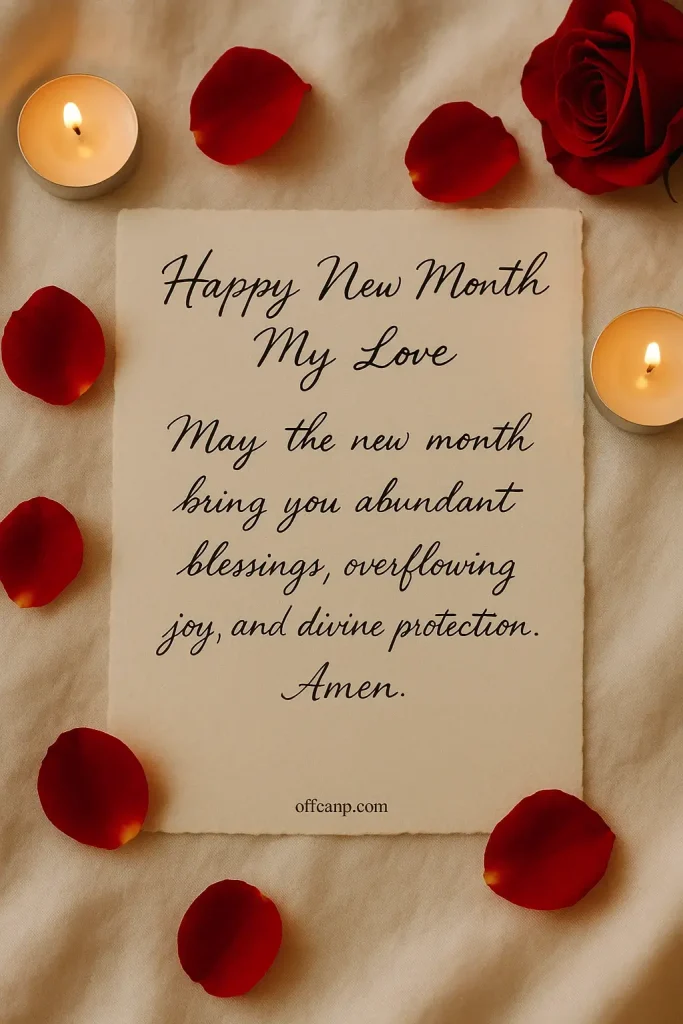 Happy New Month
My Love
May the new month
bring you abundant
blessings, overflowing
joy, and divine protection.
Amen.
offcanp.com